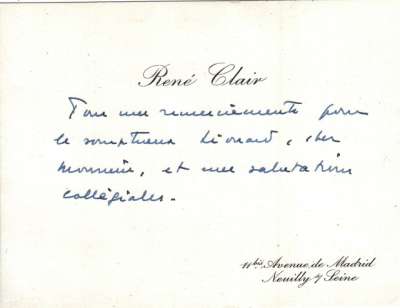 René Clair
Tous mes remerciements pour
le somptueux Léonard, cher
monsieur, et mes salutations
collégiales.
11bis Avenue de Madrid
Neuilly s/ Seine